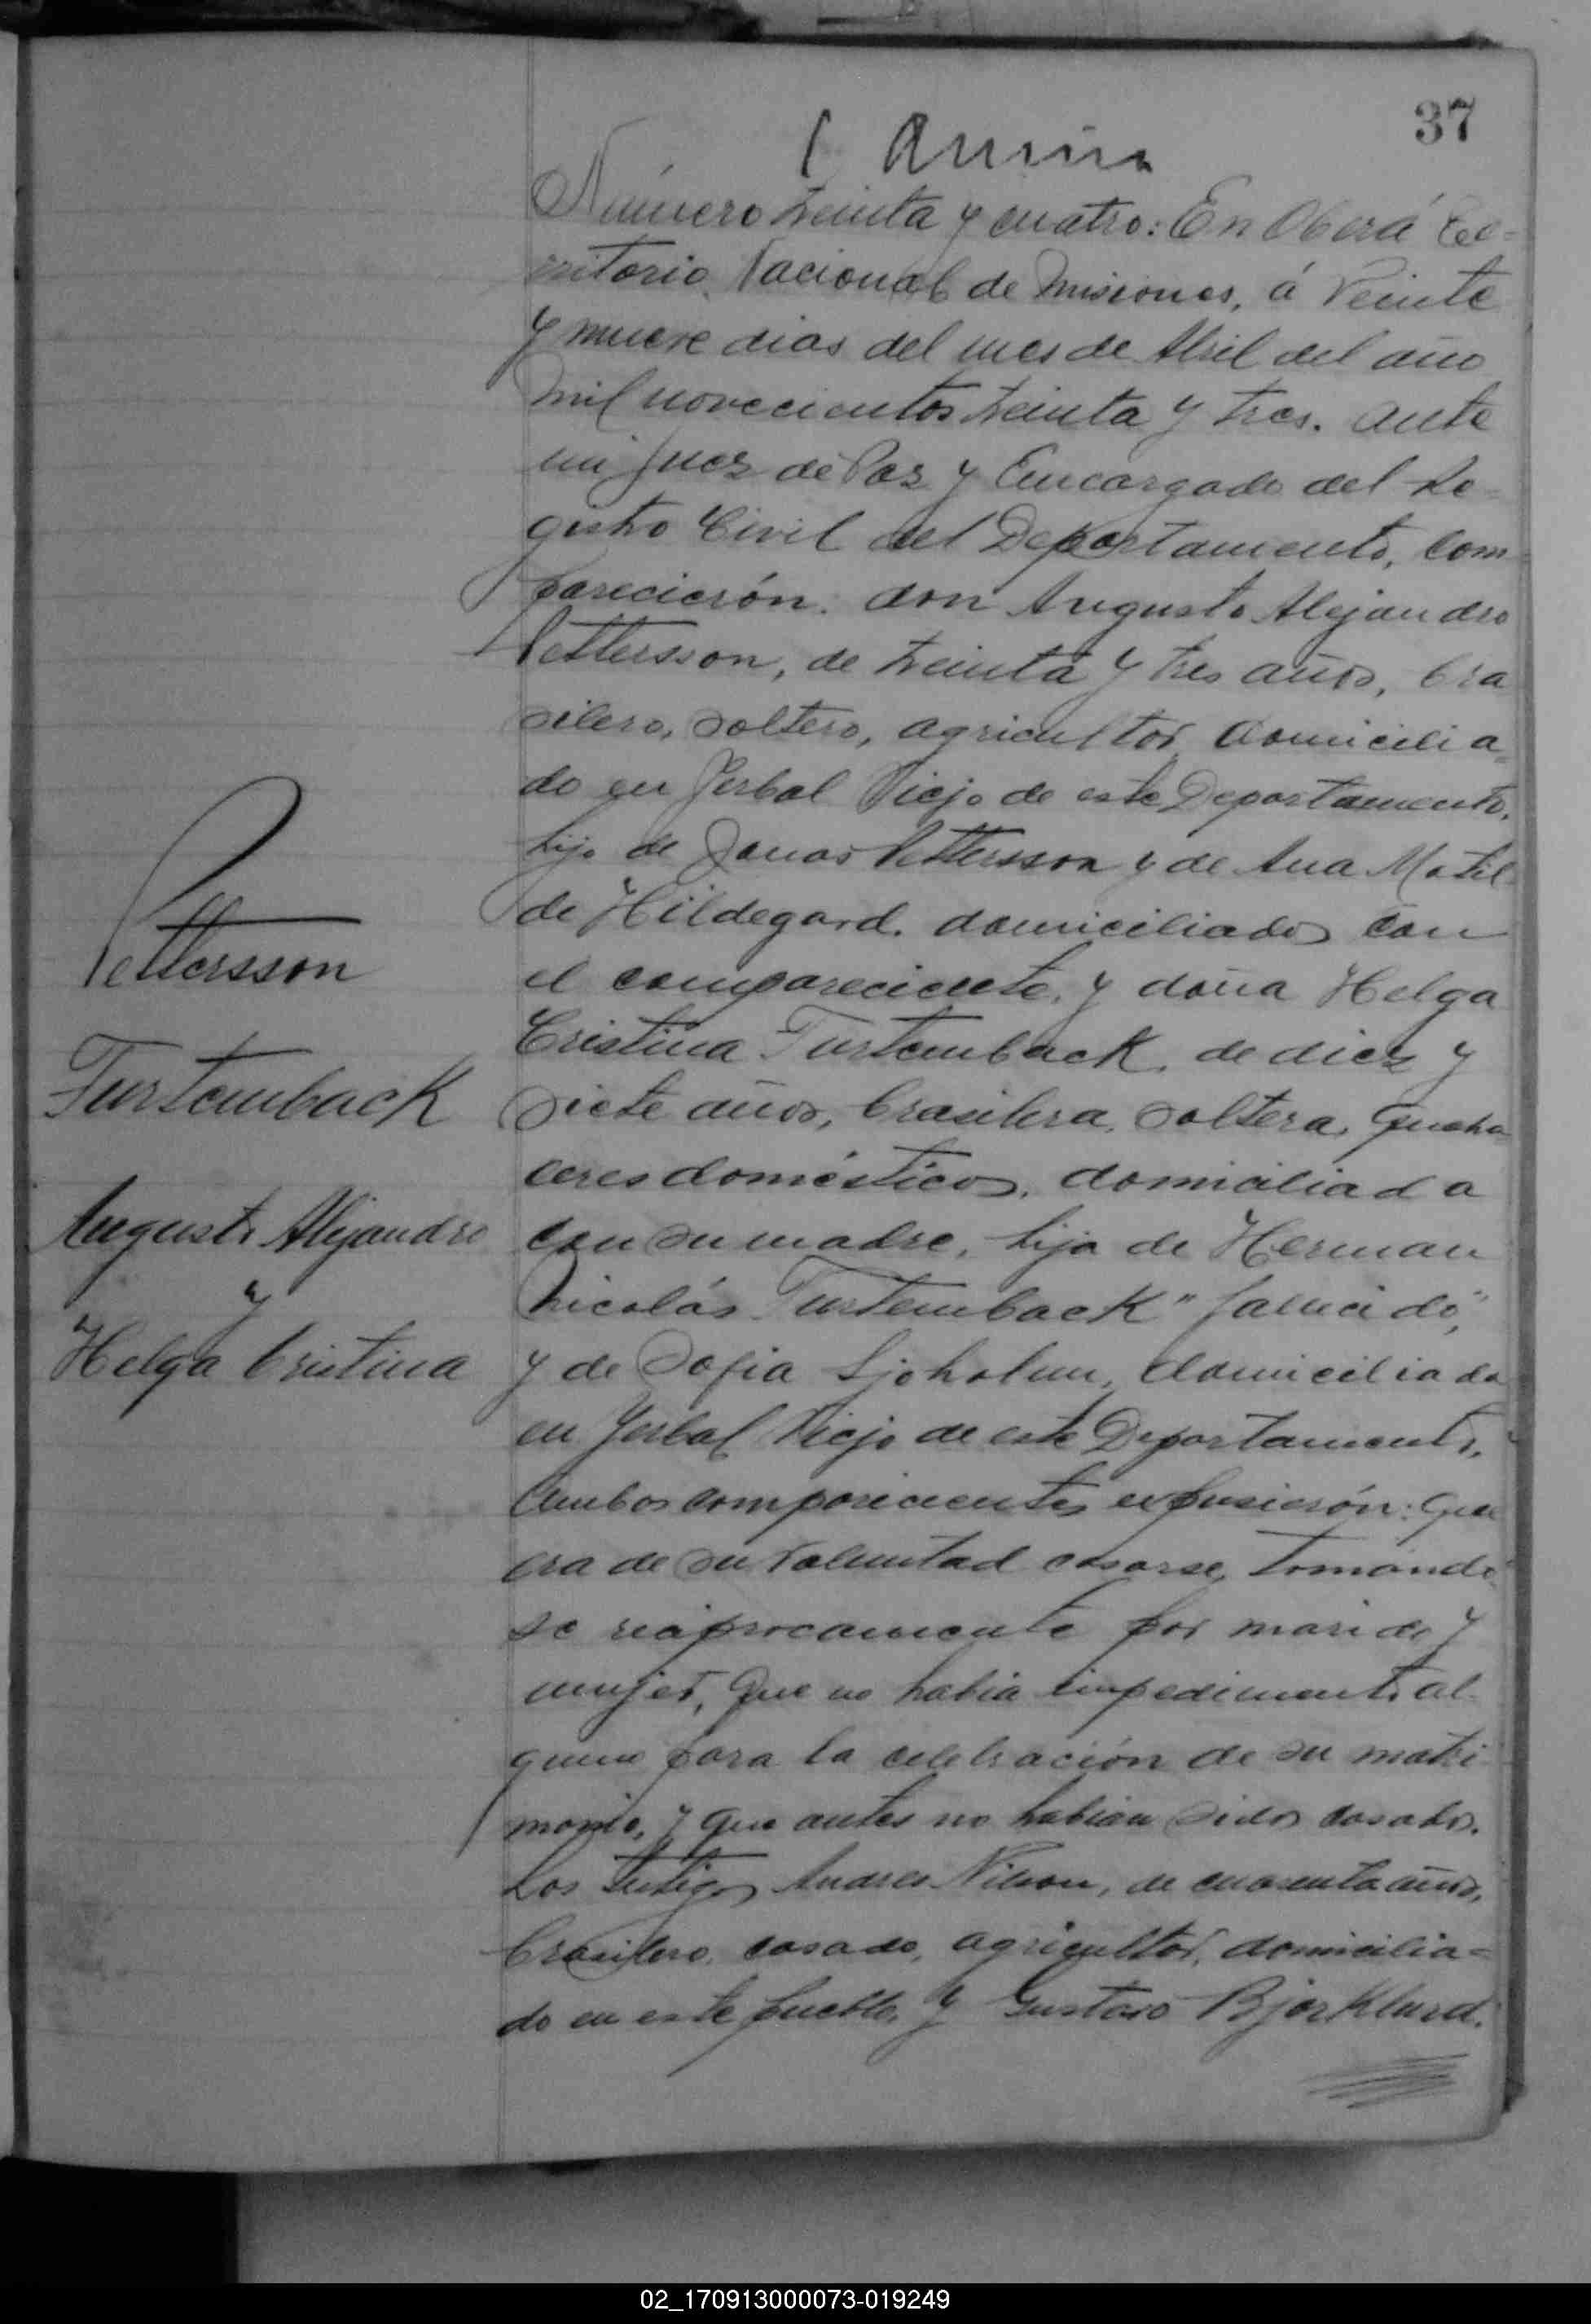 37
Número treinta y cuatro: En Oberá Te=
rritorio Nacional de Misiones, á Veinte
y nueve dias del mes de Abril del año
mil novecientos treinta y tres. ante
mi Juez de Paz y Encargado del Re=
gistro Civil del Departamento, com=
parecierón: don Augusto Alejandro
Pettersson, de treinta y tres años, bra
silero, soltero, agricultor domicilia=
do en Yerbal Viejo de este Departamento,
hijo de Jonas Pettersson y de Ana Matil=
de Hildegard. domiciliados con
el compareciente, y doña Helga
Cristina Turtemback, de diez y
siete años, brasilera, soltera, queha
ceres domésticos, domiciliada
con su madre, hija de Herman
Nicolás Turtemback "fallecido",
y de Sofia Sjoholum, domiciliada
en Yerbal Viejo de este Departamento,
Ambos comparecientes expusierón: que
era de su voluntad casarse, tomando
se reciprocamente por marido y
mujer, que no habia impedimento al=
guno para la celebración de su matri
monio, y que antes no habian sidos casados.
Los testigos Andres Nilson, de cuarenta años,
brasilero, casado, agricultor, domicilia=
do en este pueblo, y Gustavo Bjorklund.
Pettersson
Turtemback
Augusto Alejandro
y
Helga Cristina
02_170913000073-019249